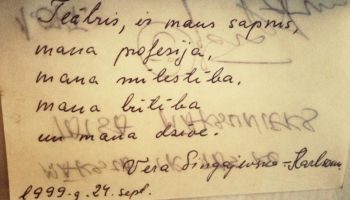 Teātris, ir mans sapnis,
mana profesija,
mana mīlestība,
mana būtība
un mana dzīve.
Vera Singajevska-
1999.g. 24. sept.